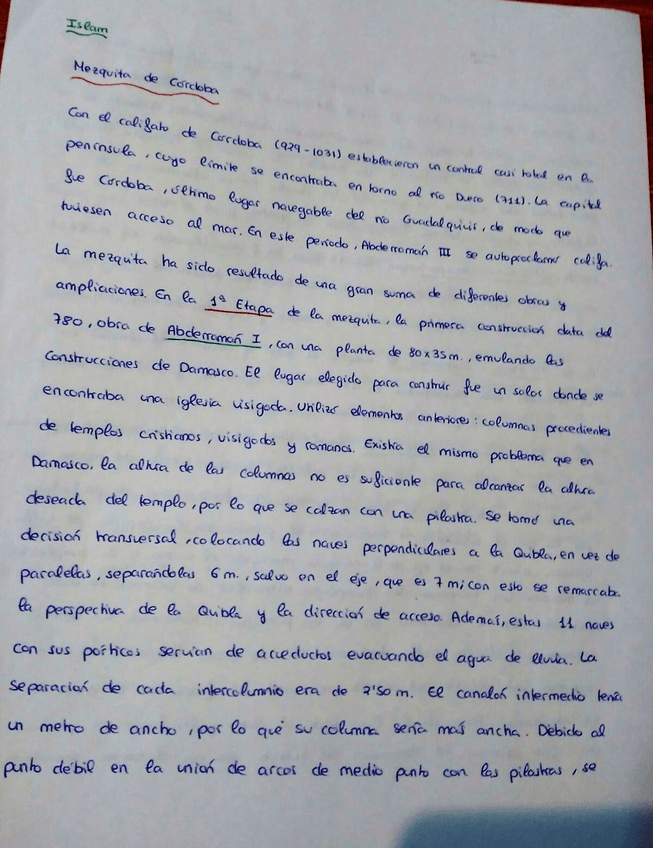 Islam
Mezquita de Córdoba
Con el califato de Córdoba (929-1031) establecieron un control casi total en la
península, cuyo límite se encontraba en torno al río Duero (711). La capital
fue Córdoba, último lugar navegable del río Guadalquivir, de modo que
tuviesen acceso al mar. En este periodo, Abderramán III se autoproclamó califa.
La mezquita ha sido resultado de una gran suma de diferentes obras y
ampliaciones. En la 1ª Etapa de la mezquita, la primera construcción data del
780, obra de Abderramán I, con una planta de 80x35m., emulando las
construcciones de Damasco. El lugar elegido para construir fue un solar donde se
encontraba una iglesia visigoda. Utilizó elementos anteriores: columnas procedientes
de templos cristianos, visigodos y romanos. Existía el mismo problema que en
Damasco, la altura de las columnas no es suficiente para alcanzar la altura
deseada del templo, por lo que se calzan con una pilastra. Se tomó una
decisión transversal, colocando las naves perpendiculares a la Quibla, en vez de
paralelas, separándolas 6 m., salvo en el eje, que es 7 m; con esto se remarcaba
la perspectiva de la Quibla y la dirección de acceso. Además, estas 11 naves
con sus pórticos servían de acueductos evacuando el agua de lluvia. La
separación de cada intercolumnio era de 2'50 m. El canalón intermedio tenía
un metro de ancho, por lo que su columna sería más ancha. Debido al
punto débil en la unión de arcos de medio punto con las pilastras, se